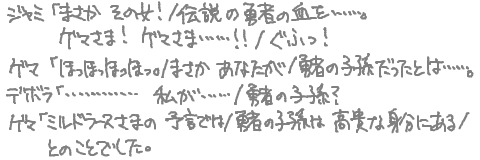 ジャミ「まさか その女！/伝説の勇者の血を……。
ゲマさま！ ゲマさま……！！/ぐふっ！
ゲマ「ほっほっほっほっ。/まさか あなたが/勇者の子孫だったとは……。
デボラ「………… 私が……/勇者の子孫？
ゲマ「ミルドラースさまの 予言では/勇者の子孫は 高貴な身分にある/
とのことでした。